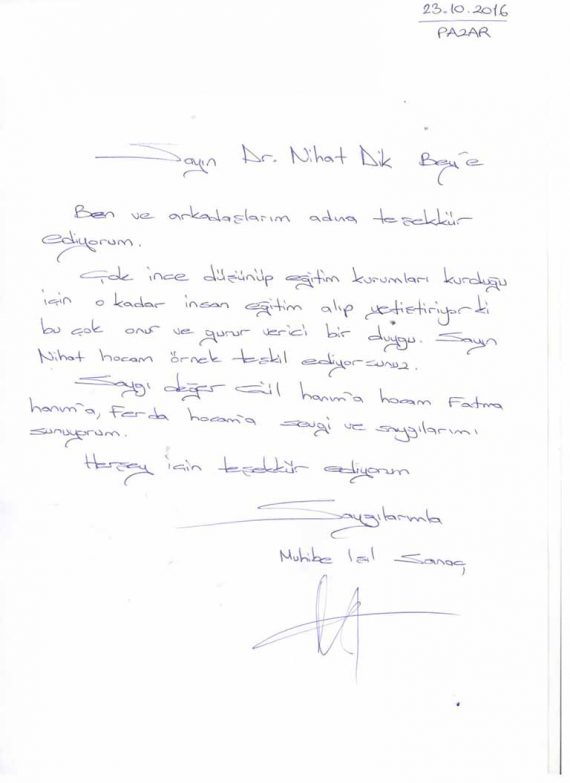 23.10.2016
PAZAR
Sayın Dr. Nihat Dik Bey'e
Ben ve arkadaşlarım adına teşekkür
ediyorum.
Çok ince düşünüp eğitim kurumları kurduğu
için o kadar insan eğitim alıp yetiştiriyor ki
bu çok onur ve gurur verici bir duygu. Sayın
Nihat hocam örnek teşkil ediyorsunuz.
Saygı değer Gül hanım'a hocam Fatma
hanım'a, Ferda hocam'a sevgi ve saygılarımı
sunuyorum.
Herşey için teşekkür ediyorum
Saygılarımla
Muhibe Işıl